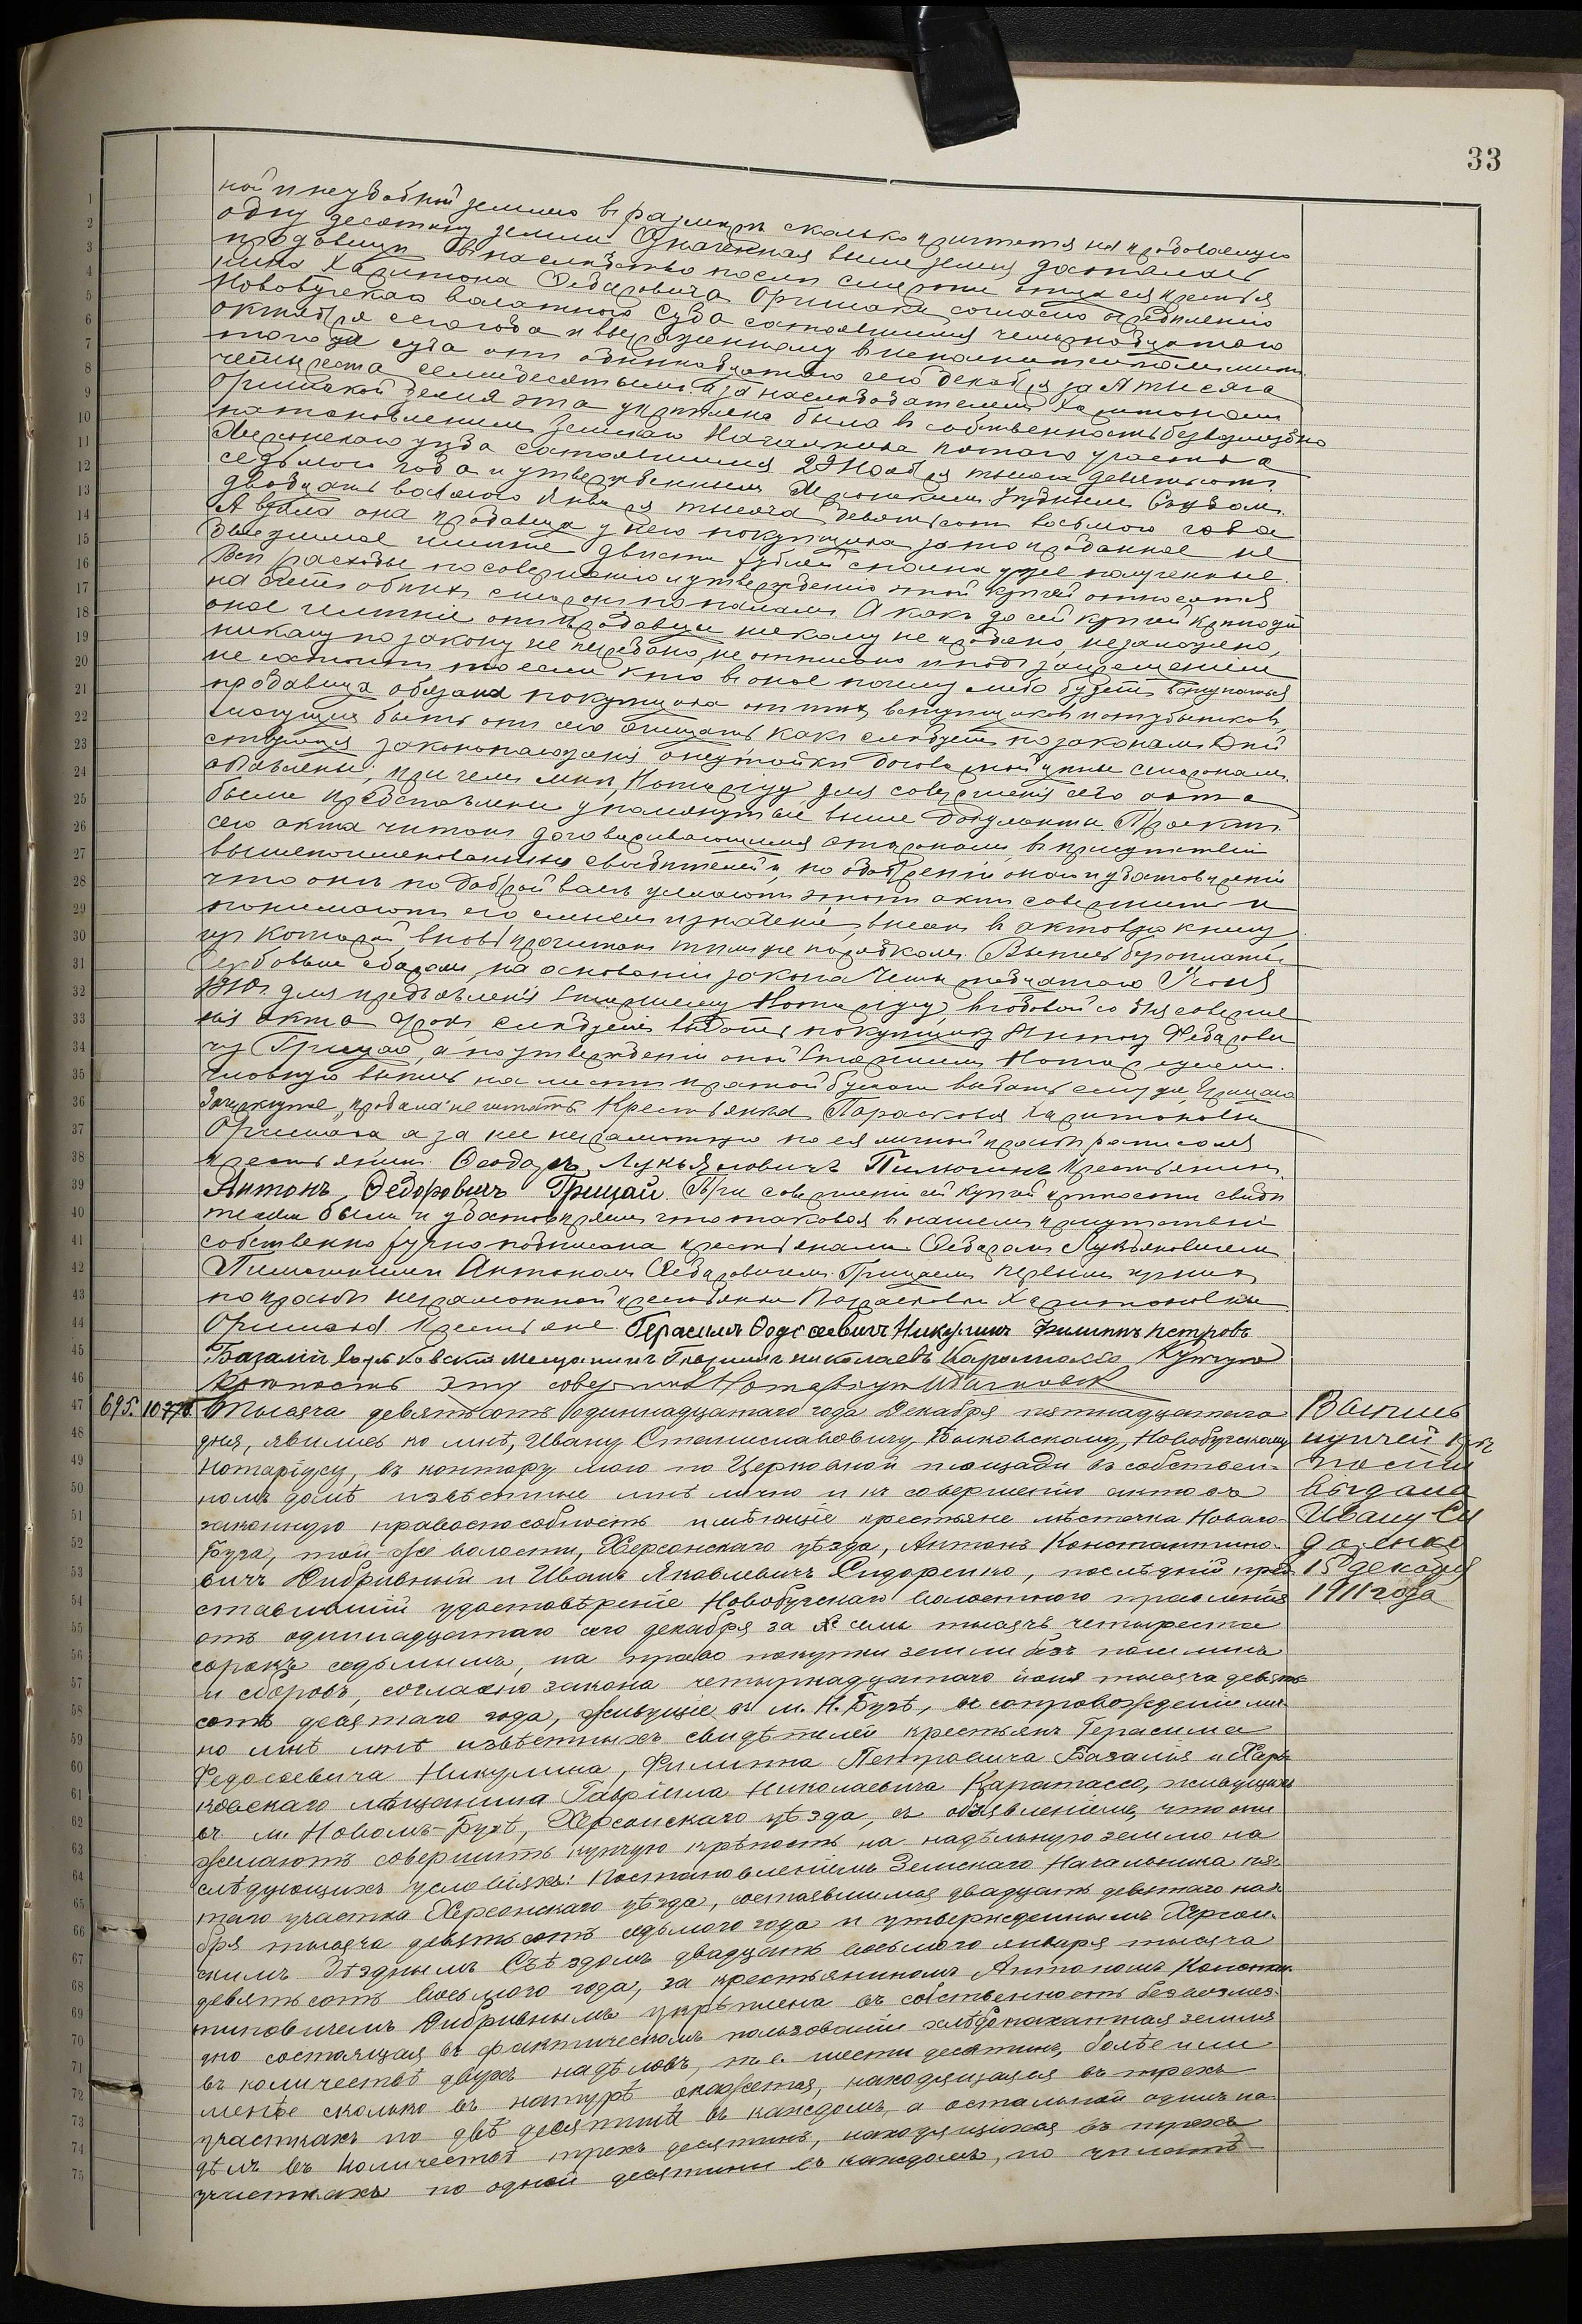 33
ной и неудобной земли въ размѣрѣ сколько причтется на продаваемую
одну десятину земли. Означенная выше земля досталась
продавицѣ въ наслѣдство послѣ смерти отца ея крестья
нина Харитона Федоровича Оришака согласно опредѣленію
Новобугскаго волостного Суда состоявшемуся четырнадцатаго
октября сего года и выраженному въ исполнительномъ
того же суда отъ одиннадцатаго сего декабря за № тысяча
четыреста семидесятымъ, а за наслѣдодателемъ Харитономъ
Оришакой земля эта укрѣплена была въ собственность безвозмездно
постановленіемъ Земскаго Начальника пятаго участка
Херсонскаго уѣзда состоявшимся 29 Ноября тысяча девятьсотъ
седьмого года и утвержденнымъ Херсонскимъ Уѣзднымъ Съѣздомъ
двадцать восьмого января тысяча девятьсотъ восьмого года
А взяла она продавица у него покупщика за то проданное не
движимое имѣніе двѣсти рублей сполна уже полученные.
Всѣ расходы по совершенію и утвержденію этой купчей относятся
на счетъ обѣихъ сторонъ пополамъ. А какъ до сей купчей крѣпости
оное имѣніе отъ продавицы никому не продано, не заложено,
никому по закону не передано, не отписано и подъ запрещеніемъ
не состоитъ то если кто въ оное почему либо будетъ вступаться
продавица обязана покупщика отъ тѣхъ вступщиковъ и отъ убытковъ,
могущихъ быть отъ сего очищать какъ слѣдуетъ по законамъ. Дѣй
ствующія законоположенія о неустойкѣ договорной цѣнѣ сторонамъ
объявлены, при чемъ мнѣ, Нотаріусу для совершенія сего акта
были представлены упомянутые выше документы. Проектъ
сего акта читанъ договаривающимся сторонамъ, въ присутствіи
вышепоименованныхъ свидѣтелей и, по одобреніи онаго и удостовѣреніи
что они по доброй волѣ желаютъ этотъ актъ совершить и
понимаютъ его смыслъ и значеніе, внесенъ въ актовую книгу
изъ которой вновь прочитанъ тѣмъ же порядкомъ. Выпись безъ оплаты
гербовымъ сборомъ на основаніи закона Четырнадцатаго Іюня
1910 г. для представленія Старшему Нотаріусу, въ годовой со дня соверше
нія акта срокъ, слѣдуетъ выдать покупщику Антону Федорови
чу Грицаю, а по утвержденіи оной Старшимъ Нотаріусомъ
таковую выпись на листѣ простой бумаги выдать ему же, Грицаю
Зачеркнутое „продана" не читать. Крестьянка Парасковія Харитоновна
Оришака а за нее неграмотную по ея личной просьбѣ росписался
крестьянинъ Ѳеодоръ Лукьяновичъ Пилюгинъ Крестьянинъ
Антонъ Федоровичъ Грицай. При совершеніи сей купчей крѣпости свидѣ
телями были и удостовѣряемъ что таковая въ нашемъ присутствіи
собственноручно подписана крестьянами Федоромъ Лукьяновичемъ
Пилюгинымъ и Антономъ Федоровичемъ Грицаемъ первымъ изъ нихъ
по просьбѣ неграмотной крестьянки Парасковіи Харитоновны
Оришака. Крестьяне Герасимъ Ѳедосѣевичъ Никулинъ Филиппъ Петровъ
Базалій Харьковскій мещанинъ Гавріилъ Николаевъ Каратассо Купчую
крѣпость эту совершилъ Нотаріусъ И Быковскій
695. 10775. Тысяча девятьсотъ одиннадцатаго года Декабря пятнадцатаго
дня, явились ко мнѣ, Ивану Станиславовичу Быковскому, Новобугскому
Нотаріусу, въ контору мою по Церковной площади въ собствен-
номъ домѣ извѣстные мнѣ лично и къ совершенію актовъ
законную правоспособность имѣющіе крестьяне мѣстечка Новаго-
Буга, той-же волости, Херсонскаго уѣзда, Антонъ Константино-
вичъ Дибривный и Иванъ Яковлевичъ Сидоренко, послѣдній пред
ставившій удостовѣреніе Новобугскаго волостного правленія
отъ одиннадцатаго сего декабря за № семь тысячъ четыреста
сорокъ седьмымъ, на право покупки земли безъ пошлинъ
и сборовъ, согласно закона четырнадцатаго іюня тысяча девять-
сотъ десятаго года, живущіе въ м. Н. Бугѣ, въ сопровожденіи лич
но мнѣ мнѣ извѣстныхъ свидѣтелей крестьянъ Герасима
Федосѣевича Никулина, Филиппа Петровича Базалія и Харь
ковскаго мѣщанина Гавріила Николаевича Каратассо, живущихъ
въ м. Новомъ-Бугѣ, Херсонскаго уѣзда, съ объявленіемъ, что они
желаютъ совершить купчую крѣпость на надѣльную землю на
слѣдующихъ условіяхъ: Постановленіемъ Земскаго Начальника пя-
таго участка Херсонскаго уѣзда, состоявшимся двадцать девятаго ноя
бря тысяча девятьсотъ седьмого года и утвержденнымъ Херсон-
скимъ Уѣзднымъ Съѣздомъ двадцать восьмого января тысяча
девятьсотъ восьмого года, за крестьяниномъ Антономъ Констан-
тиновичемъ Дибривнымъ укрѣплена въ собственность безвозмез-
дно состоящая въ фактическомъ пользованіи хлѣбопахатная земля
въ количествѣ двухъ надѣловъ, т. е. шести десятинъ, болѣе или
менѣе сколько въ натурѣ окажется, находящаяся въ трехъ
участкахъ по двѣ десятины въ каждомъ, а остальной одинъ на-
дѣлъ въ количествѣ трехъ десятинъ, находящихся въ трехъ
участкахъ по одной десятинѣ въ каждомъ, по уплатѣ
Выпись
купчей крѣ
пости
выдана
Ивану Си
доренко
15 декабря
1911 года
1
2
3
4
5
6
7
8
9
10
11
12
13
14
15
16
17
18
19
20
21
22
23
24
25
26
27
28
29
30
31
32
33
34
35
36
37
38
39
40
41
42
43
44
45
46
47
48
49
50
51
52
53
54
55
56
57
58
59
60
61
62
63
64
65
66
67
68
69
70
71
72
73
74
75